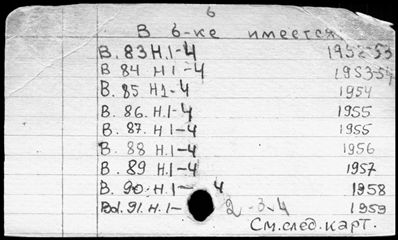 6
В б-ке имеется
В. 83 Н.1-4 1952-53
В 84 Н1-4 1953-54
В. 85 Н1-4 1954
В. 86. Н.1-4 1955
В. 87. Н.1-4 1955
В. 88 Н.1-4 1956
В. 89 Н.1-4 1957
В. 90. Н.1-4 1958
Вd. 91. Н.1- 2-3-4 1959
См. след. карт.